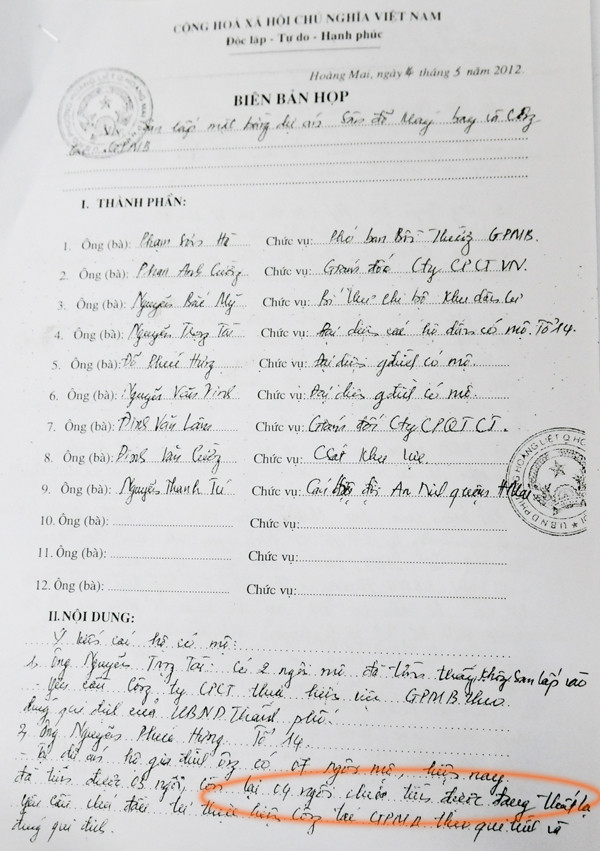 CỘNG HOÀ XÃ HỘI CHỦ NGHĨA VIỆT NAM
Độc lập - Tự do - Hạnh phúc
Hoàng Mai, ngày 4 tháng 5 năm 2012.
BIÊN BẢN HỌP
V/v San lấp mặt bằng dự án Sân đỗ Máy bay và Công
tác GPMB
I. THÀNH PHẦN:
1. Ông (bà): Phạm Sơn Hà Chức vụ: Phó ban Bồi Thường GPMB.
2. Ông (bà): Phan Anh Cường Chức vụ: Giám đốc Cty CPCT VN.
3. Ông (bà): Nguyễn Bắc Mỹ Chức vụ: Bí thư chi bộ Khu dân cư
4. Ông (bà): Nguyễn Trọng Tài Chức vụ: Đại diện các hộ dân có mộ. Tổ 14.
5. Ông (bà): Đỗ Phúc Hưng Chức vụ: Đại diện gđình có mộ.
6. Ông (bà): Nguyễn Văn Chức vụ: Đại diện gđình có mộ.
7. Ông (bà): Đinh Văn Lâm Chức vụ: Giám đốc Cty CPQT CT.
8. Ông (bà): Đinh Văn Cường Chức vụ: CSát Khu vực
9. Ông (bà): Nguyễn Thanh Tú Chức vụ: Cán đội An Ninh quận HMai
10. Ông (bà): Chức vụ:
11. Ông (bà): Chức vụ:
12. Ông (bà): Chức vụ:
II. NỘI DUNG:
Ý kiến các hộ có mộ:
1. Ông Nguyễn Trọng Tài: có 2 ngôi mộ đã tìm thấy không San lấp vào
Yêu cầu Công ty CPCT thực hiện việc GPMB theo
đúng qui định của UBND. Thành phố.
2, Ông Nguyễn Phúc Hưng Tổ 14.
- Tại dự án hộ gia đình ông có 07 ngôi mộ, hiện nay
đã tìm được 03 ngôi, còn lại 04 ngôi chưa tìm được đang thất lạc
Yêu cầu chủ đầu tư thực hiện công tác GPMB theo qui
đúng qui định.